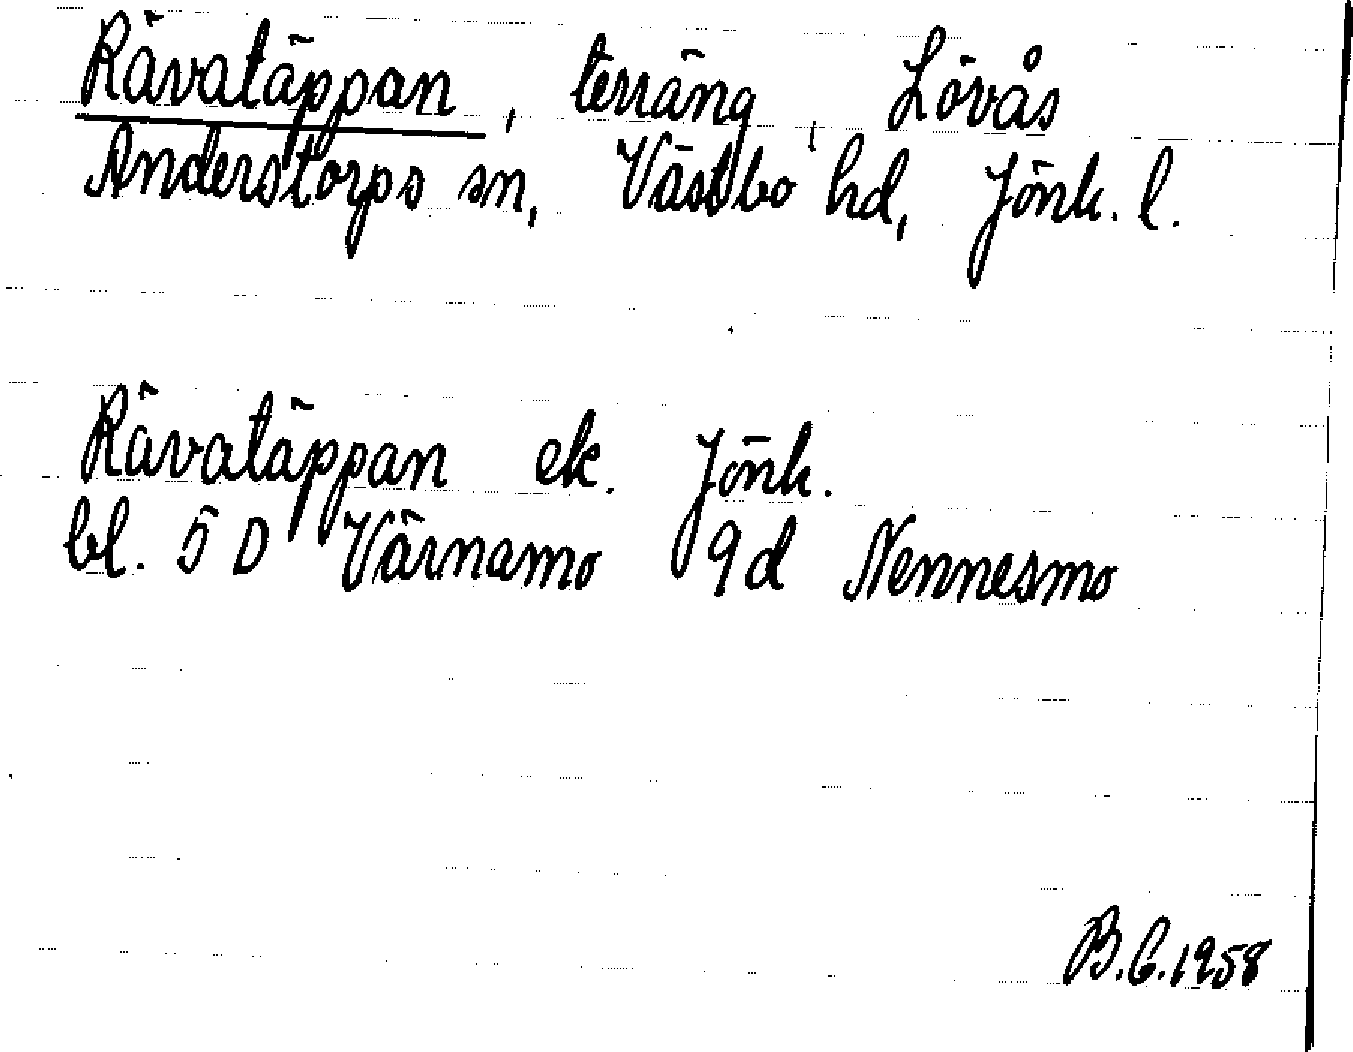 Rävatäppan, terräng, Lövås
Anderstorps sn, Västbo hd, Jönk. l.
Rävatäppan ek. Jönk.
bl. 5 D Värnamo 9d Nennesmo
B.G.1958